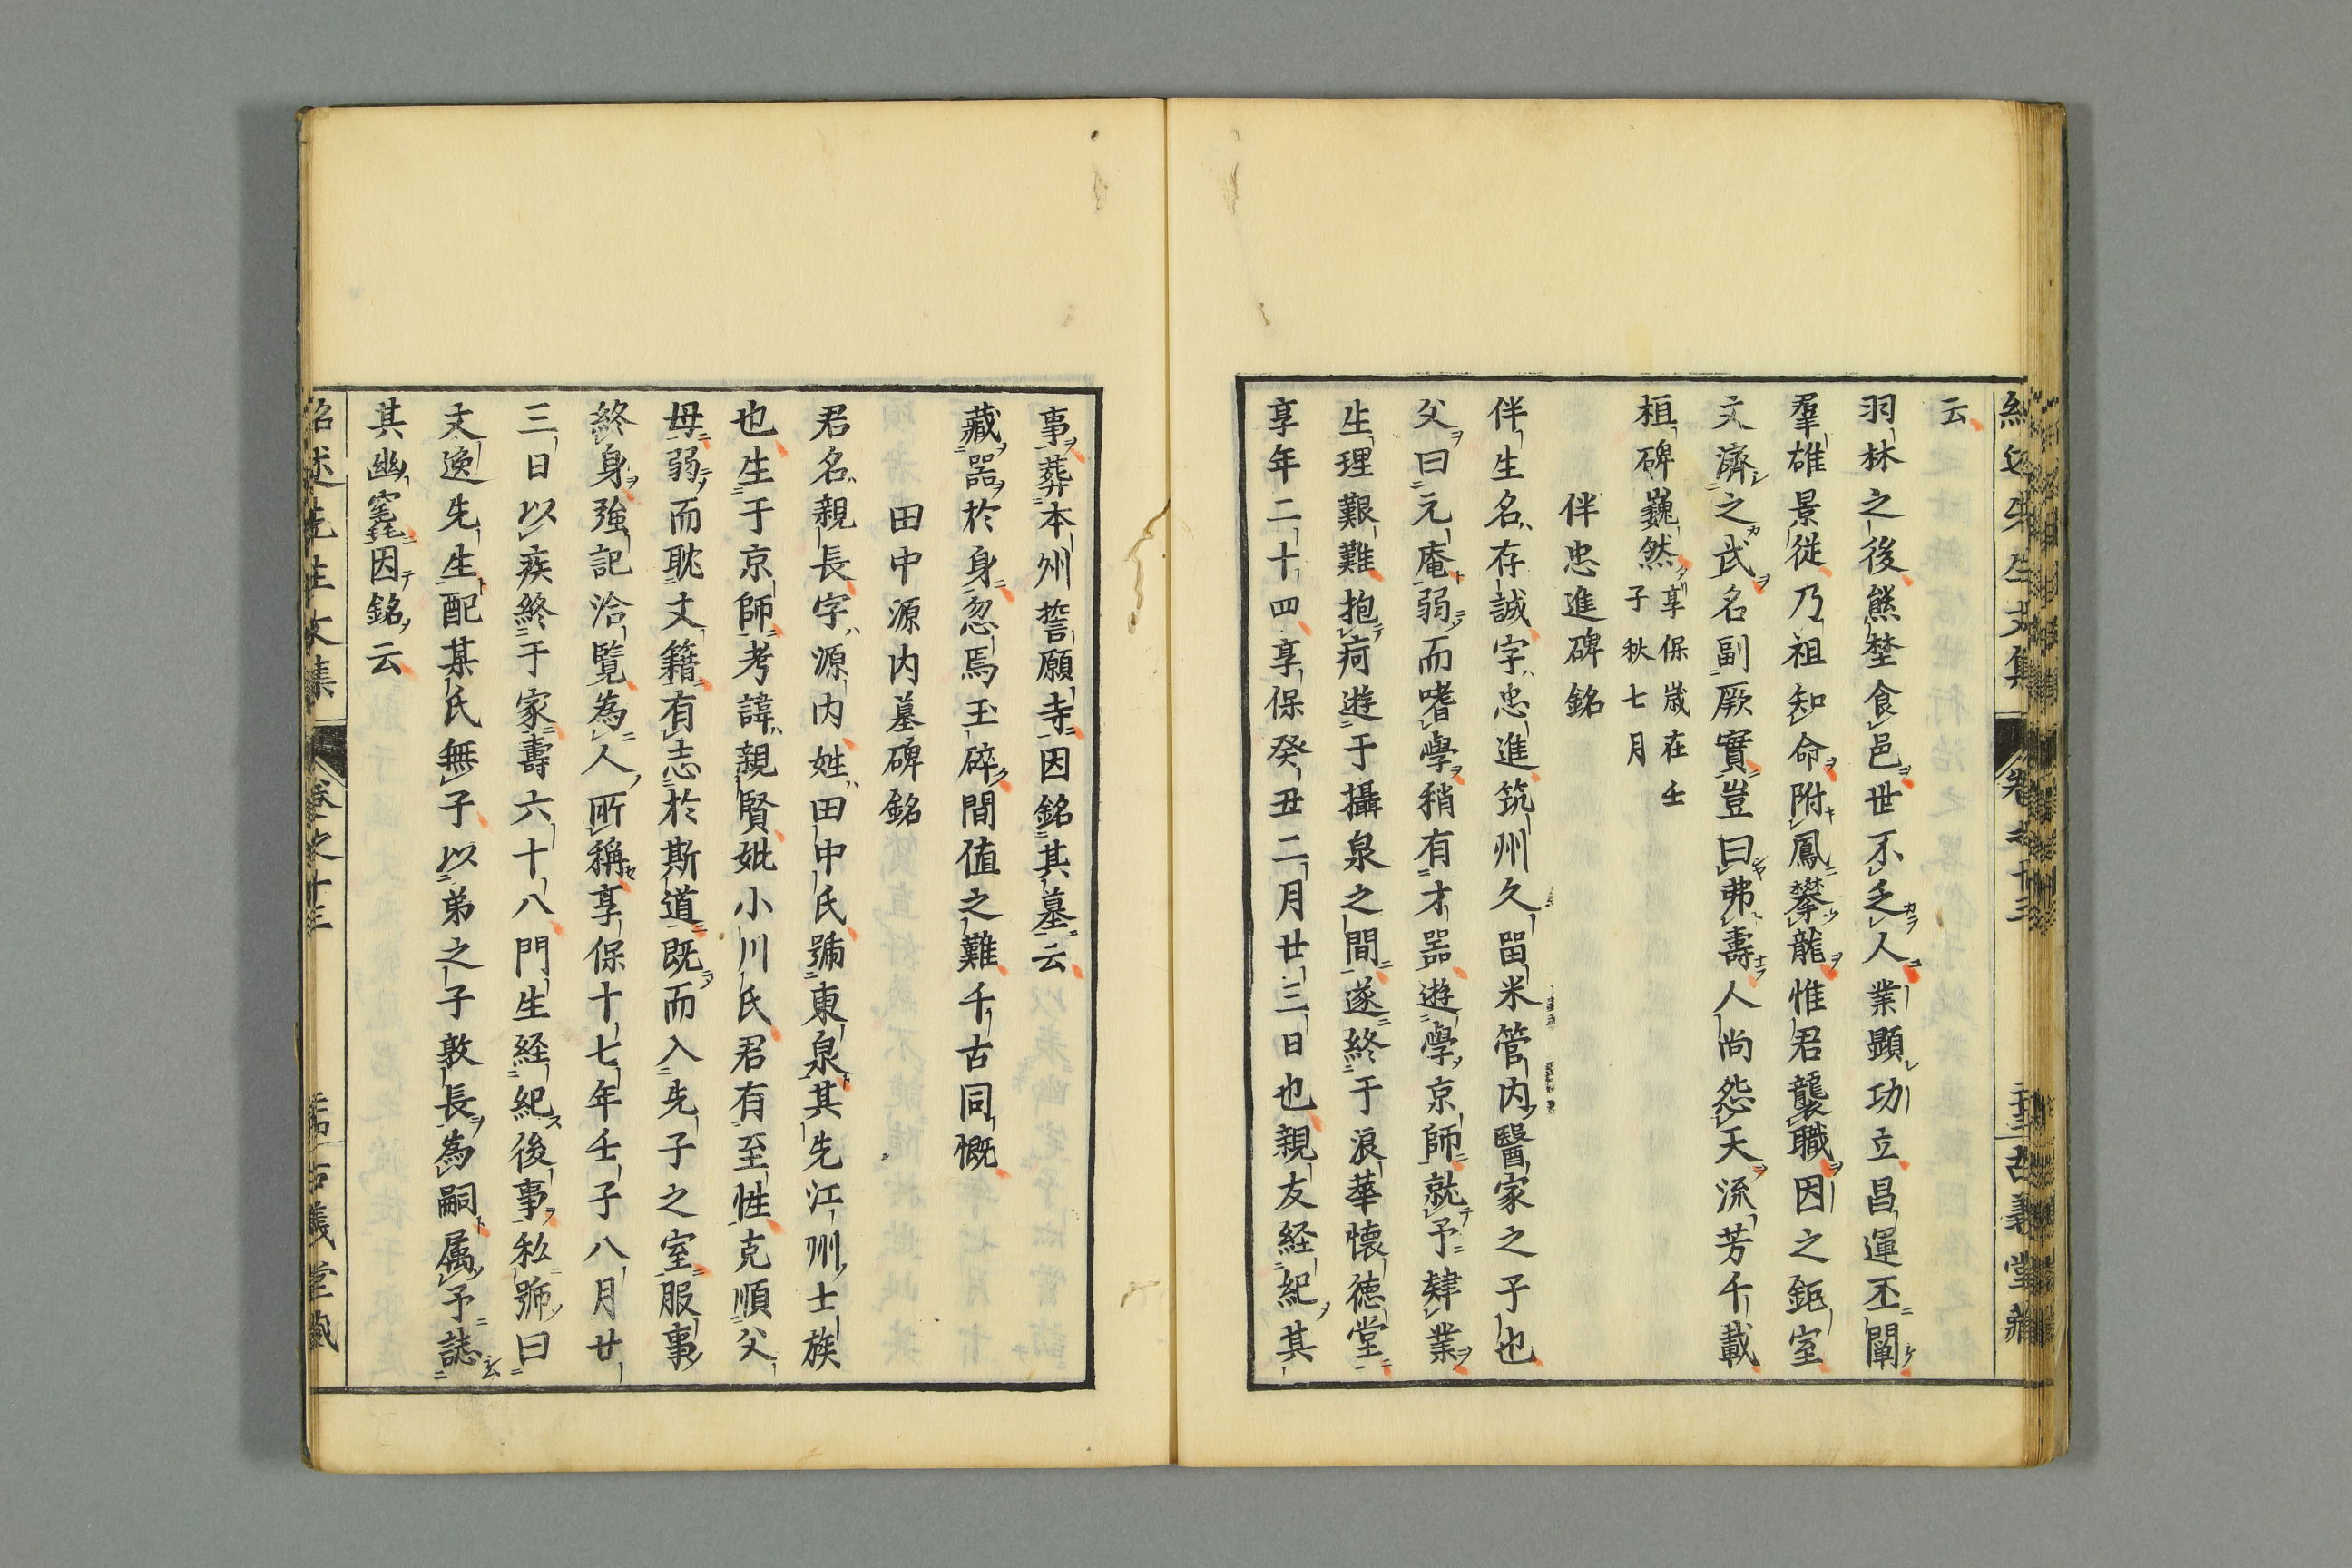 云
羽林之後熊埜食邑世不乏人業顕功立昌運丕闡
羣雄景従乃祖知命附鳳攀龍惟君襲職因之鉅室
文濟之武名副厥實豈曰弗壽人尚怨天流芳千載
植碑巍然享保歳在壬
子秋七月
伴忠進碑銘
伴生名存誠字忠進筑州久留米管内醫家之子也
父曰元庵弱而嗜學稍有才器遊學京師就予肄業
生理艱難抱疴遊于攝泉之間遂終于浪華懐徳堂
享年二十四享保癸丑二月廿三日也親友経紀其
事葬本州誓願寺因銘其墓云
藏器於身忽焉玉碎間値之難千古同慨
田中源内墓碑銘
君名親長字源内姓田中氏號東泉其先江州士族
也生于京師考諱親賢妣小川氏君有至性克順父
母弱而耽文籍有志於斯道既而入先子之室服事
終身強記洽覧為人所稱享保十七年壬子八月廿
三日以疾終于家壽六十八門生経紀後事私號曰
文逸先生配某氏無子以弟之子敦長為嗣属予誌
其幽窀因銘云
紹述先生文集 卷之十三 古義堂藏